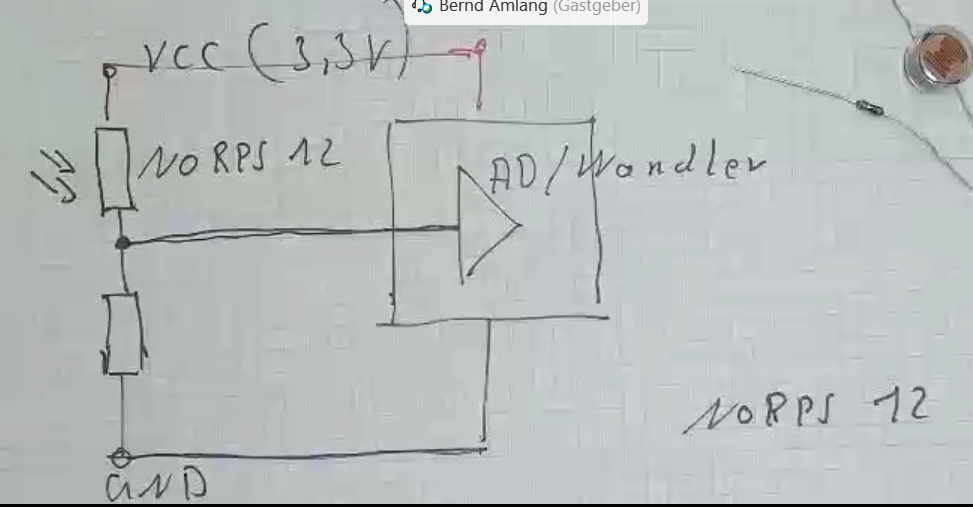 Bernd Amlang (Gastgeber)
VCC (3,3V)
NORPS 12
AD/Wandler
NORPS 12
GND